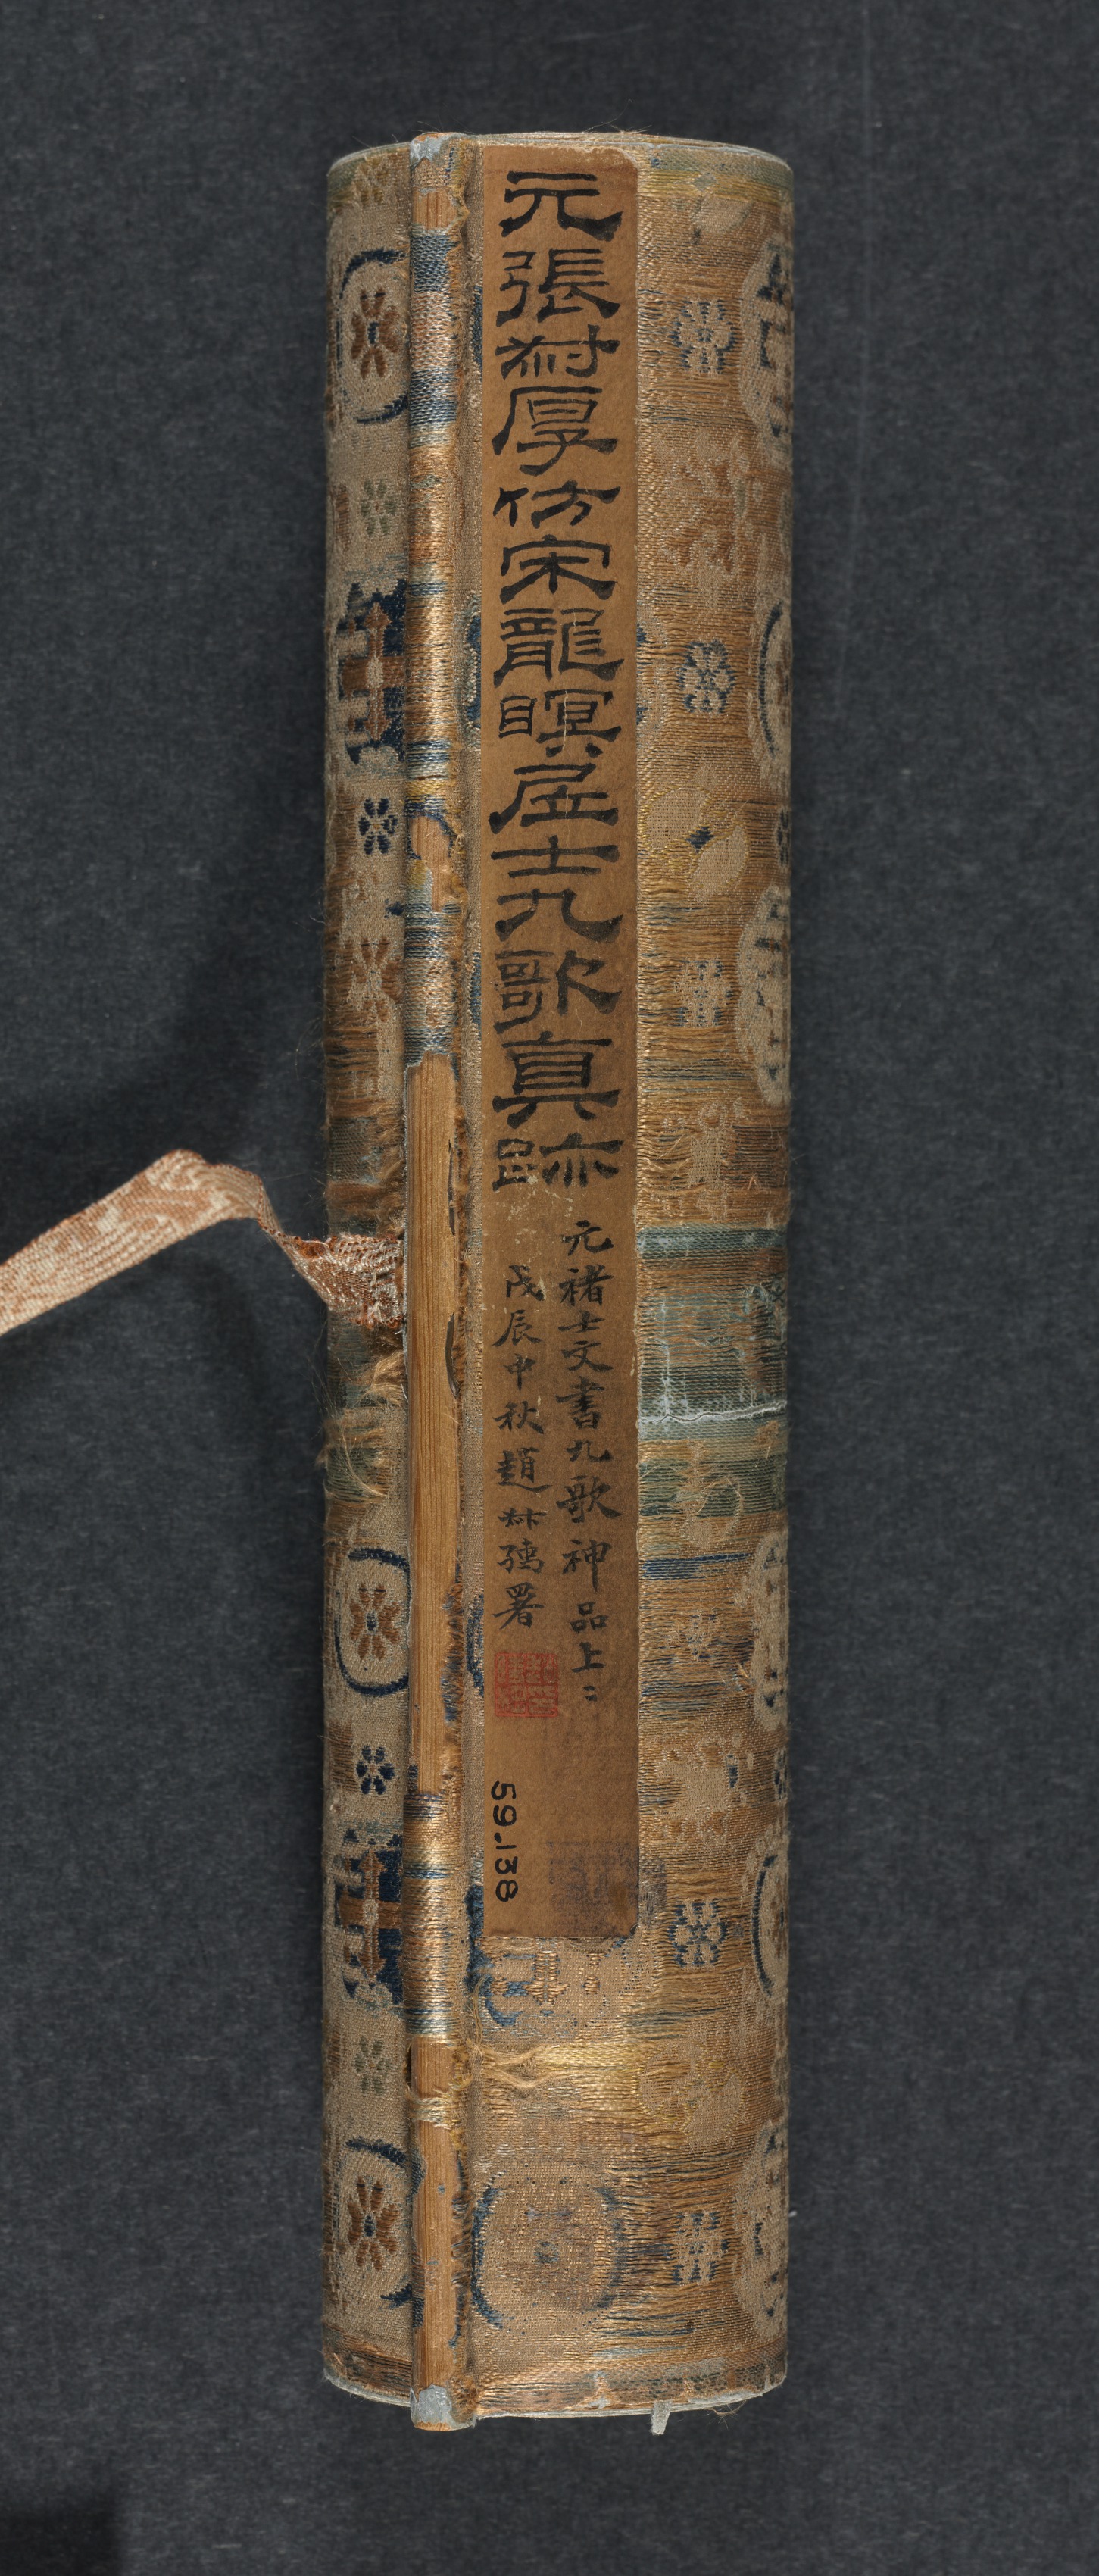 元張尗厚仿宋龍瞑居士九歌真跡
元褚士文書九歌神品上〻
戊辰中秋趙尗孺署
59.138